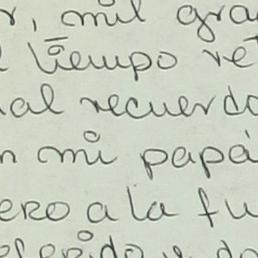 r, mil gra
tiempo re
al recuerdo
n mi papá
ero a la fu